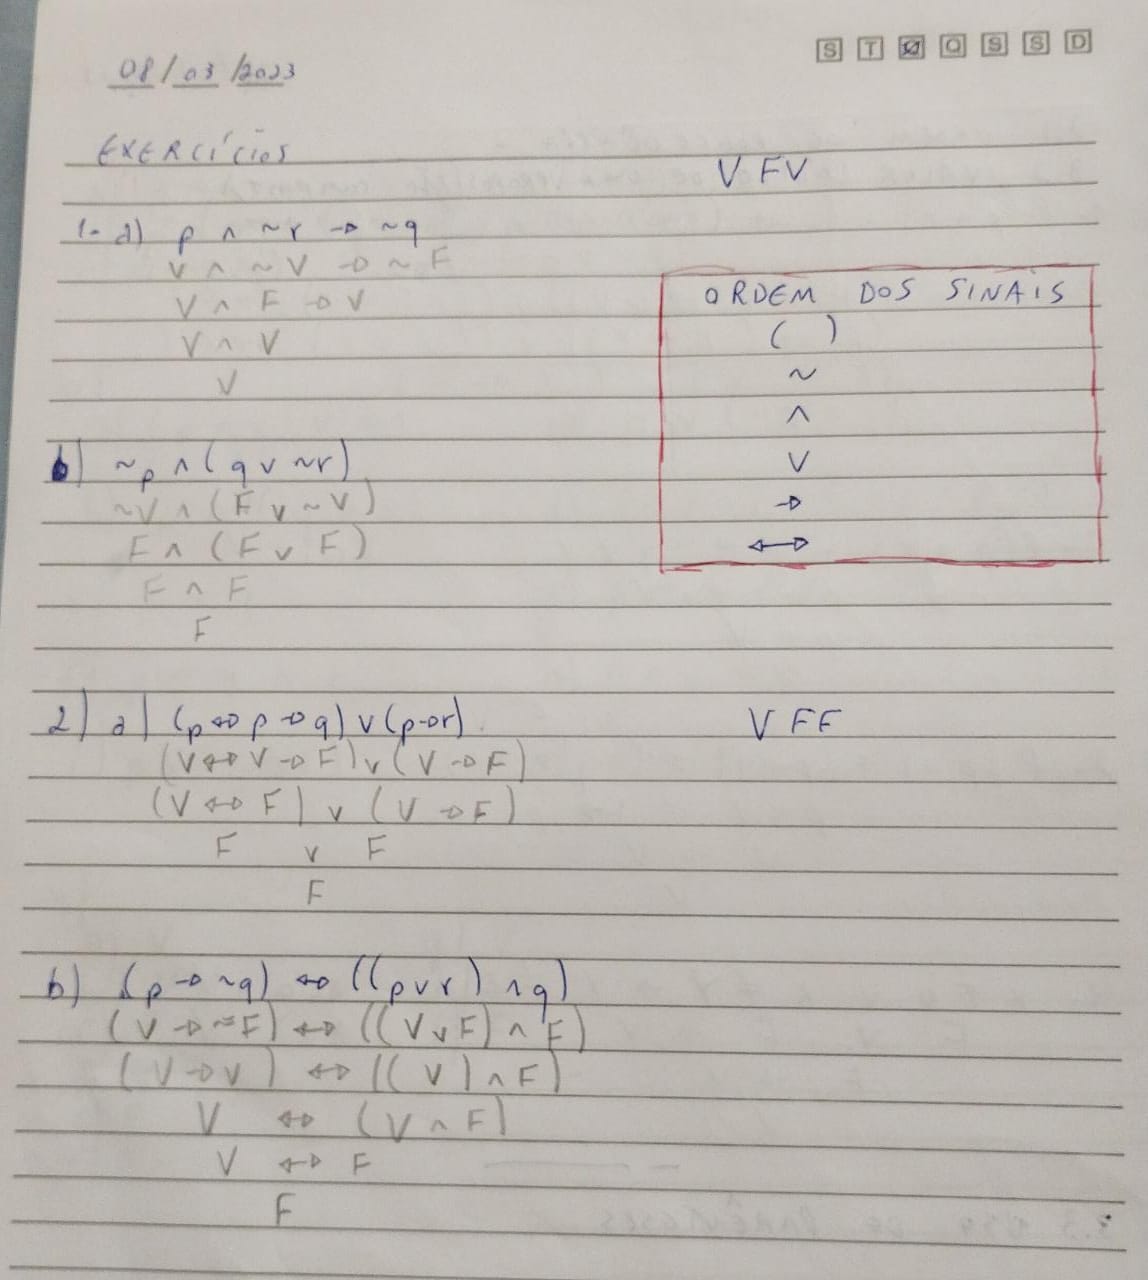 S T Q Q S S D
08/03/2023
EXERCÍCIOS
V F V
1- a) p ∧ ~r → ~q
V ∧ ~V → ~F
V ∧ F → V
V ∧ V
V
ORDEM DOS SINAIS
( )
~
∧
∨
→
↔
b) ~p ∧ (q ∨ ~r)
~V ∧ (F ∨ ~V)
F ∧ (F ∨ F)
F ∧ F
F
2) a) (p ↔ p → q) ∨ (p → r).
V F F
(V ↔ V → F) ∨ (V → F)
(V ↔ F) ∨ (V → F)
F ∨ F
F
b) (p → ~q) ↔ ((p ∨ r) ∧ q)
(V → ~F) ↔ ((V ∨ F) ∧ F)
(V → V) ↔ ((V) ∧ F)
V ↔ (V ∧ F)
V ↔ F
F